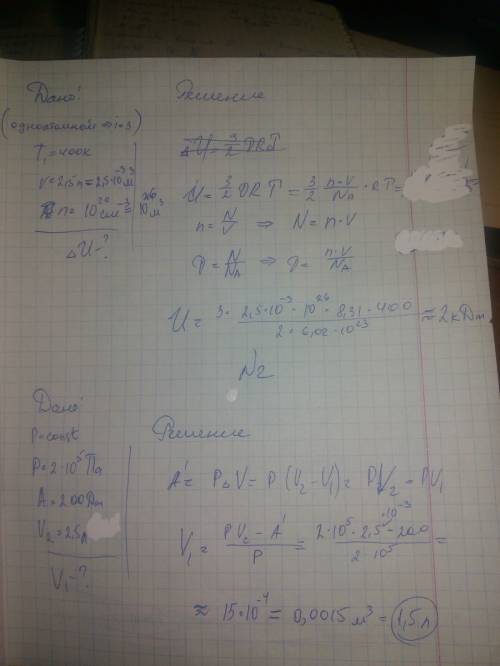 Дано:
Решение
(одноатомной => i=3)
T₁=400К
V=2,5л=2,5·10⁻³м³
n=10²⁰см⁻³=10²⁶м⁻³
ΔU-?
ΔU=3/2 νRT
U=3/2 νRT=3/2 n·V/Nₐ·RT=
n=N/V => N=n·V
ν=N/Nₐ => ν=n·V/Nₐ
U=3·2,5·10⁻³·10²⁶·8,31·400/2·6,02·10²³≈2кДж
N2
Дано:
Решение
P=const
P=2·10⁵Па
A=200Дж
V₂=2,5л
V₁-?
A'=PΔV=P(V₂-V₁)=PV₂-PV₁
V₁=PV₂-A'/P=2·10⁵·2,5·10⁻³-200/2·10⁵=
≈15·10⁻⁴=0,0015м³=1,5л